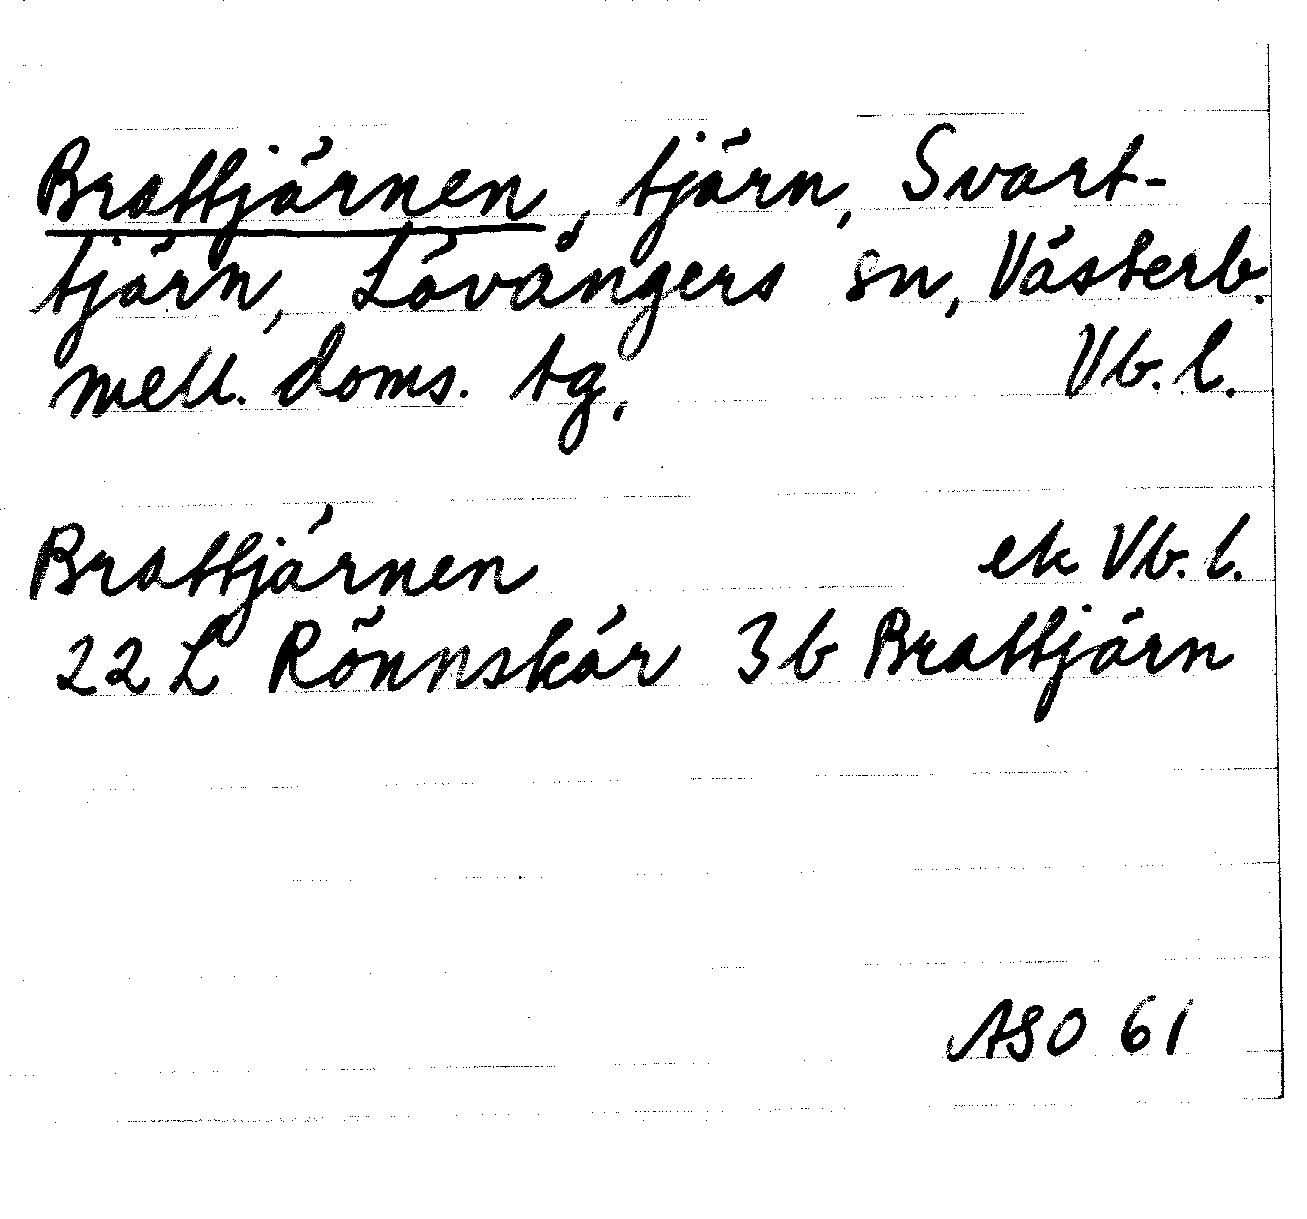 Brattjärnen, tjärn, Svart-
tjärn, Lövångers sn, Västerb.
mell. doms. tg. Vb. l.
Brattjärnen ek Vb. l.
22 L Rönnskär 3b Brattjärn
ASO 61